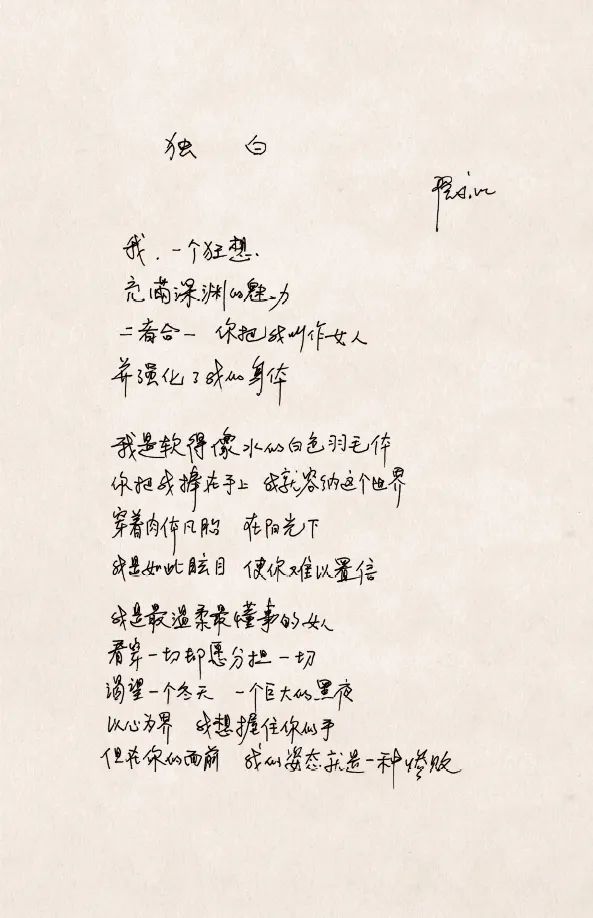 独 白
翟永明
我，一个狂想，
充满深渊的魅力
二者合一 你把我叫作女人
并强化了我的身体
我是软得像水的白色羽毛体
你把我捧在手上 我就容纳这个世界
穿着肉体凡胎 在阳光下
我是如此眩目 使你难以置信
我是最温柔最懂事的女人
看穿一切却愿分担一切
渴望一个冬天 一个巨大的黑夜
以心为界 我想握住你的手
但在你的面前 我的姿态就是一种惨败